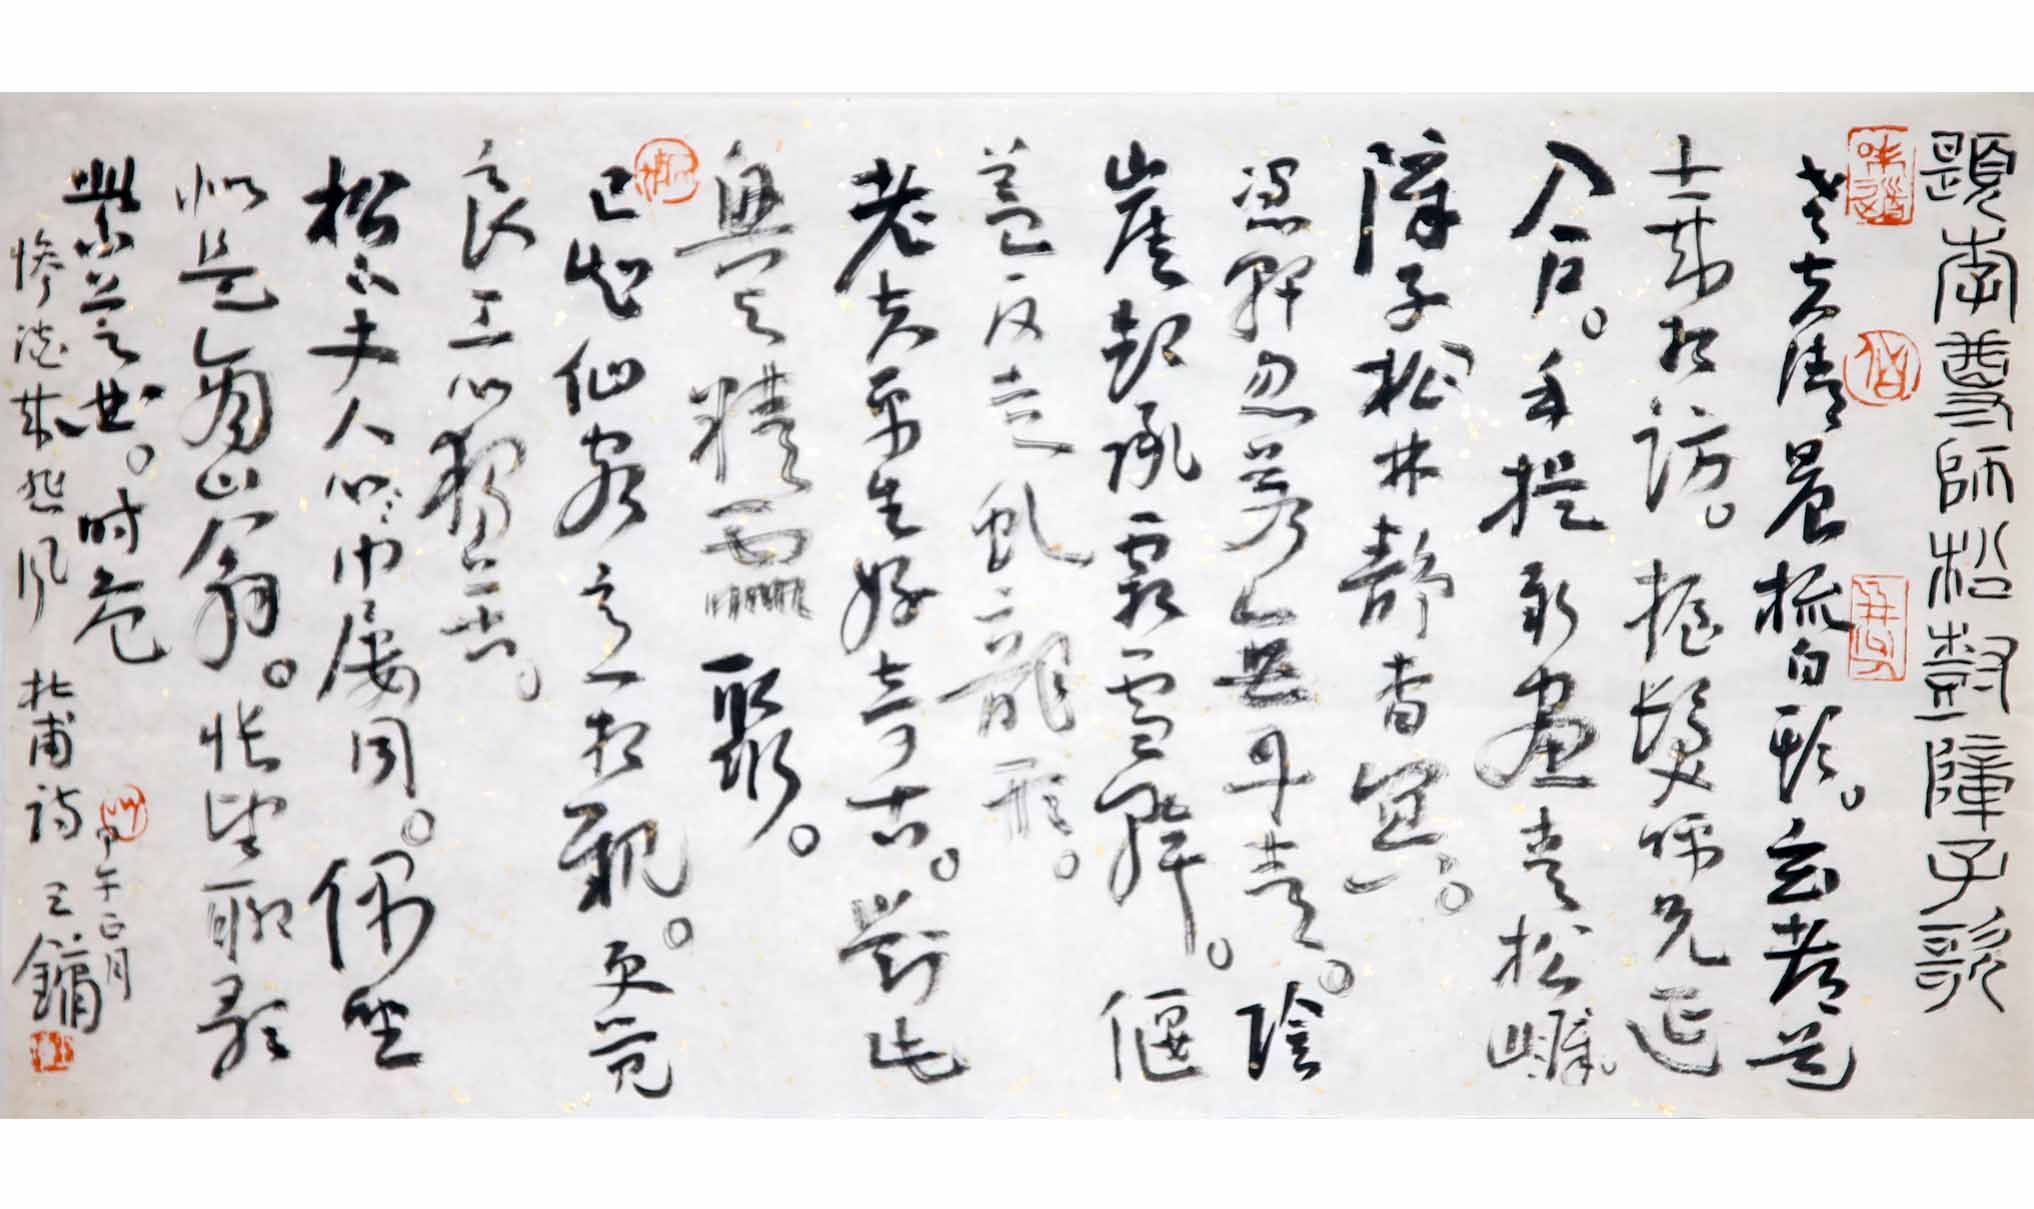 題李尊師松樹障子歌
老夫清晨梳白頭。玄都道
士來相訪。握髮呼兒延
入戶。手提新畫青松
障子松林靜杳冥。
憑軒忽若無丹青。陰
崖却承霜雪幹。偃
蓋反走虬龍形。
老夫平生好奇古。對此
興與精靈聚。
已知仙客意相親。更覺
良工心獨苦。
松下丈人心巾屨同。偶坐
似是商山翁。悵望聊歌
紫芝曲。时危
慘澹來悲風 杜甫詩 王鏞
甲午正月